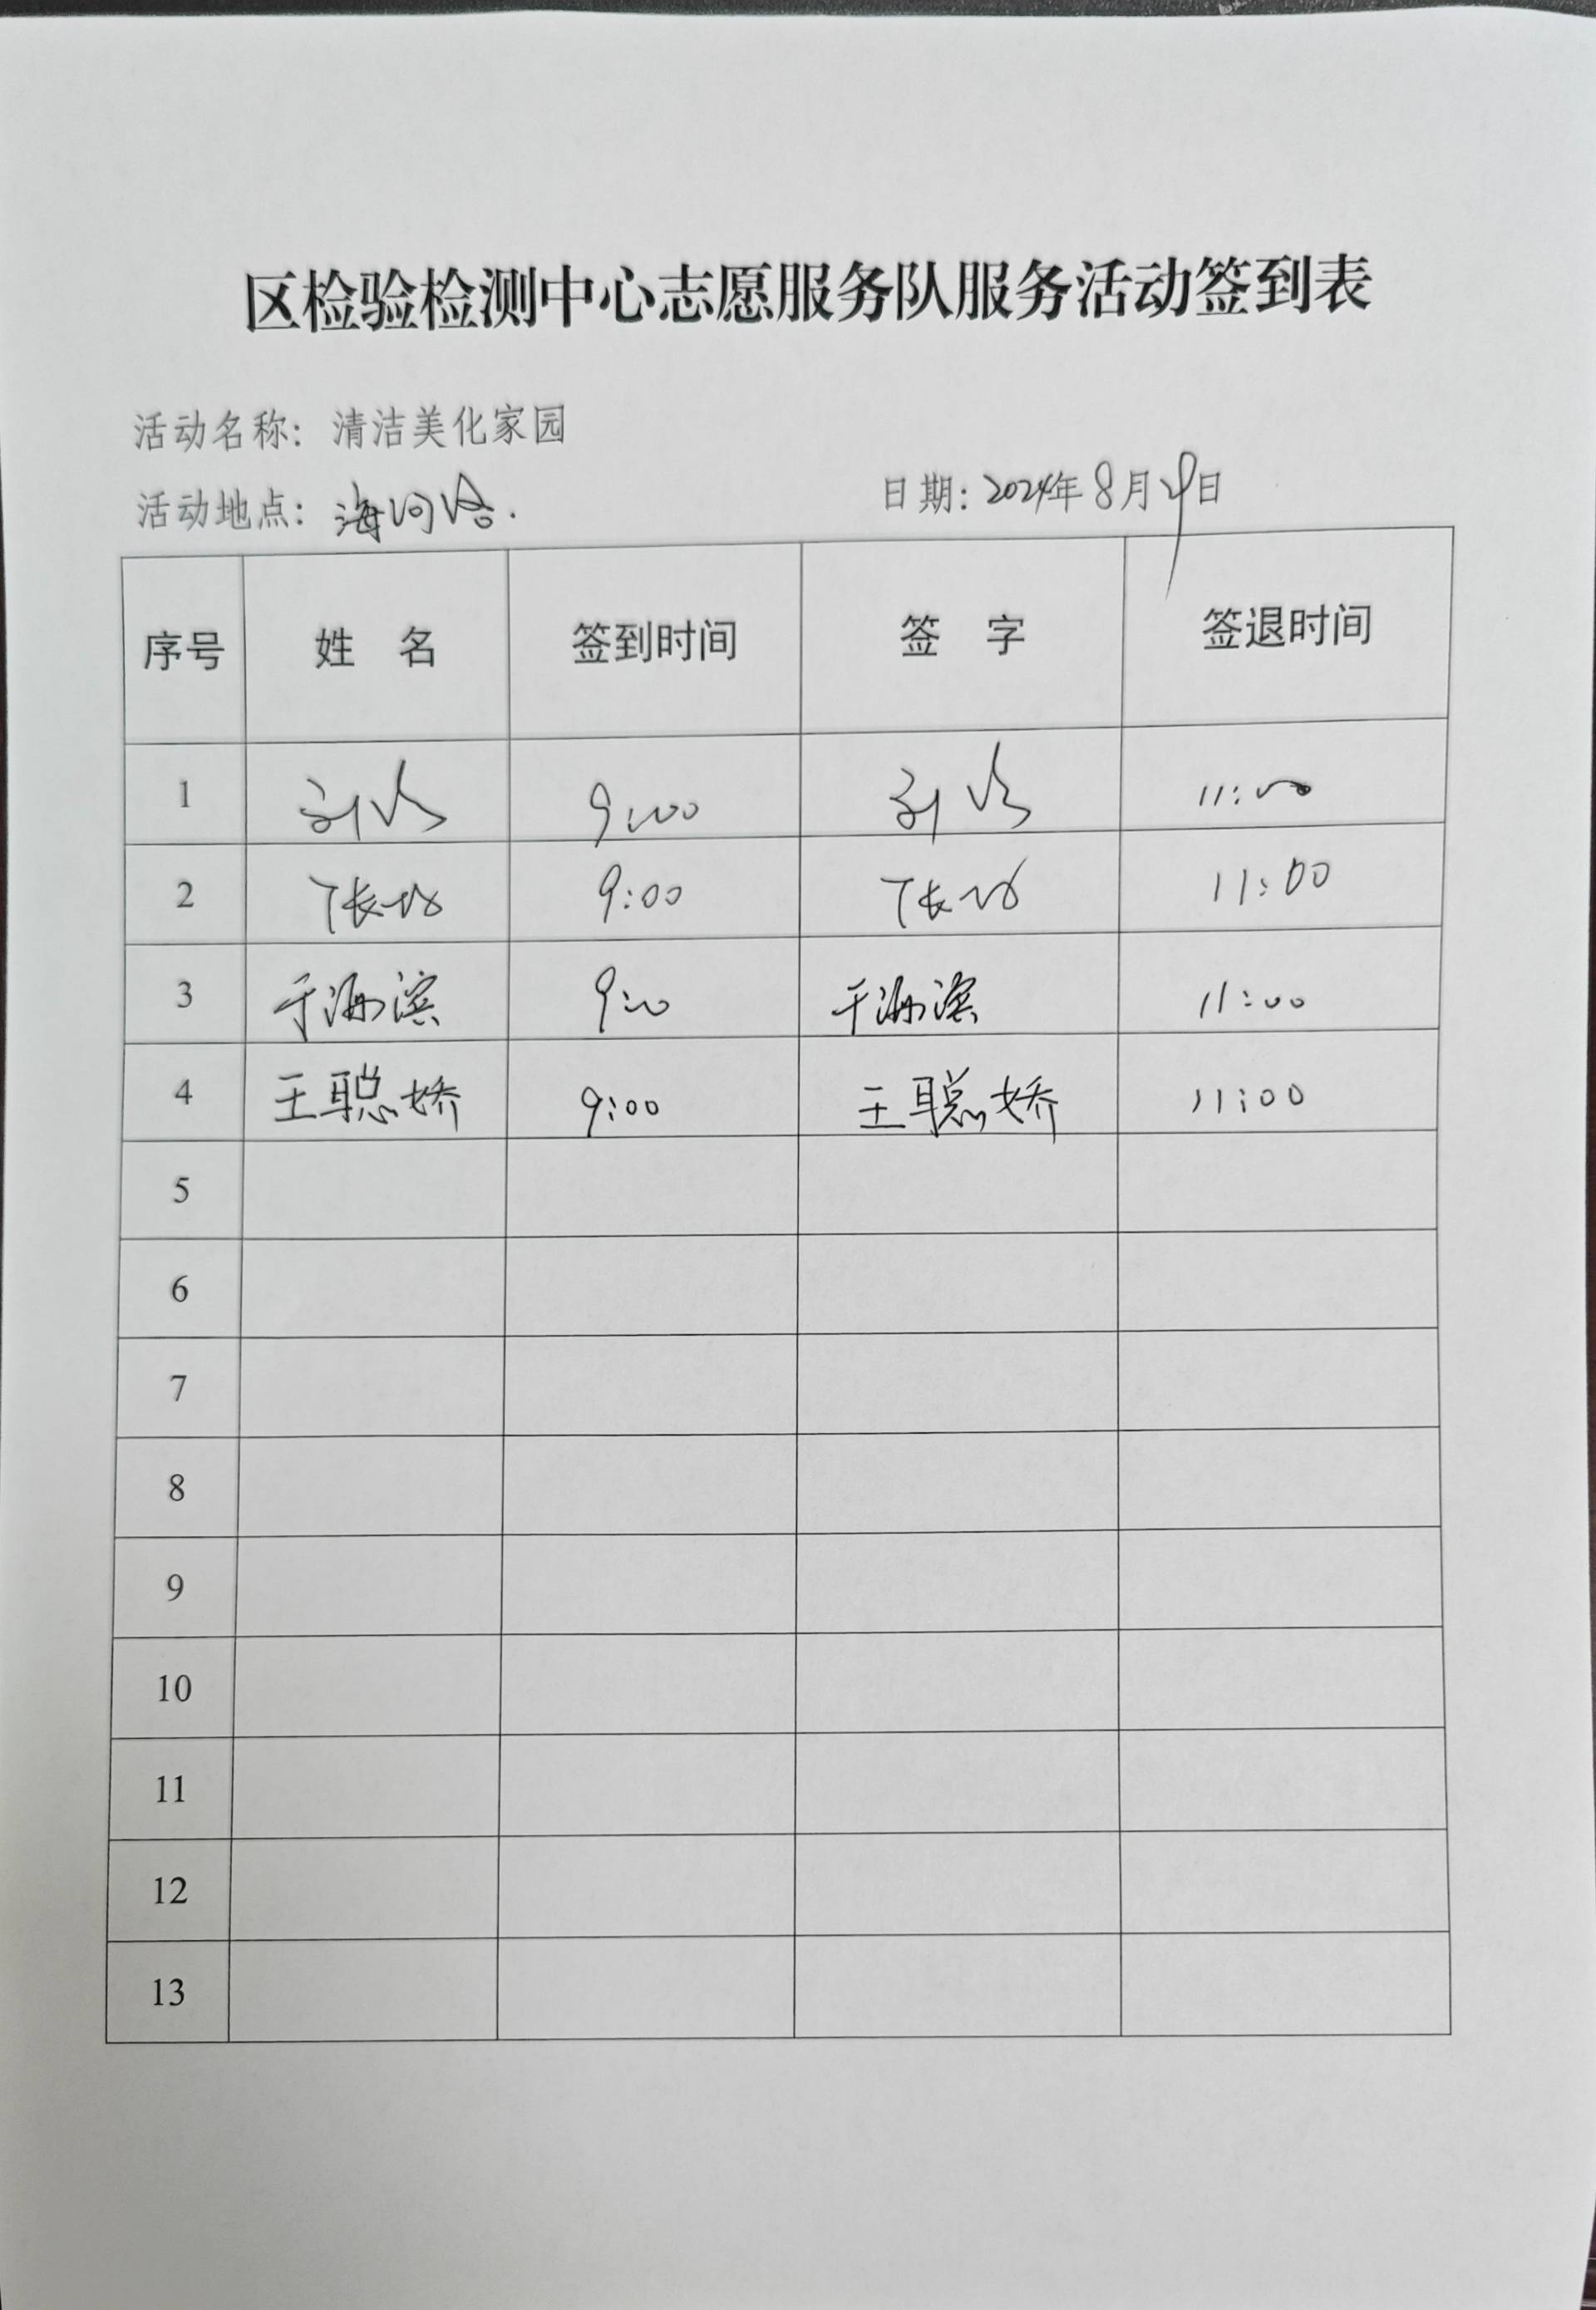 区检验检测中心志愿服务队服务活动签到表
活动名称：清洁美化家园
活动地点：海河
日期：2024年8月29日
序号 姓 名 签到时间 签 字 签退时间
1 刘 9:00 刘 11:00
2 张 9:00 张 11:00
3 于海滨 9:00 于海滨 11:00
4 王聪娇 9:00 王聪娇 11:00
5
6
7
8
9
10
11
12
13